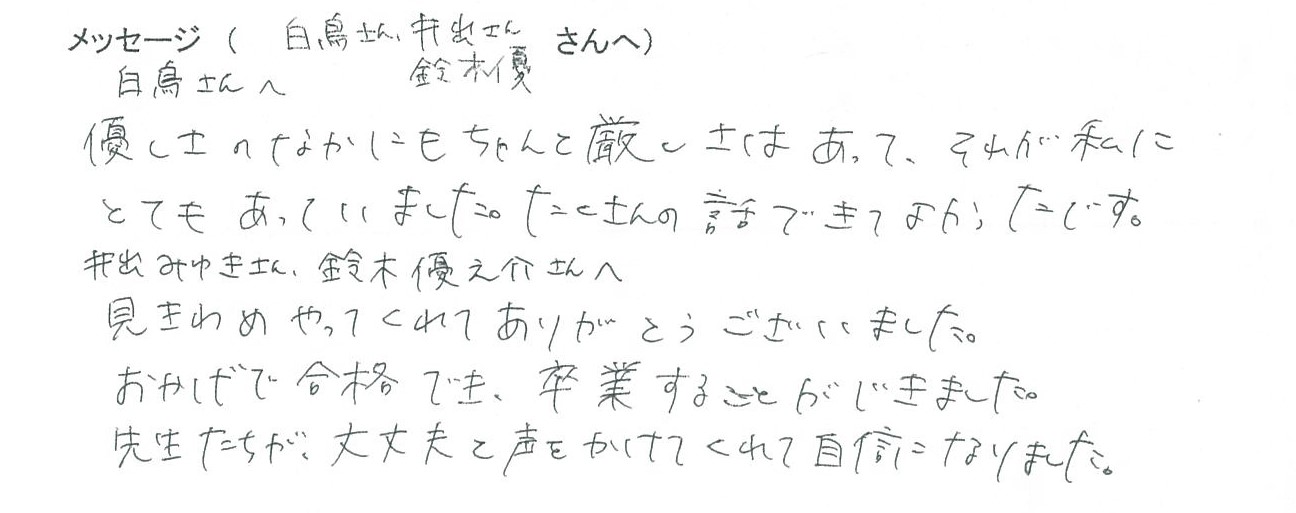 メッセージ ( 白鳥さん、井出さん さんへ)
鈴木優
白鳥さんへ
優しさのなかにもちゃんと厳しさはあって、それが私に
とてもあっていました。たくさんの話できてよかったです。
井出みゆきさん、鈴木優之介さんへ
見きわめやってくれてありがとうございました。
おかげで合格でき、卒業することができました。
先生たちが、大丈夫と声をかけてくれて自信になりました。